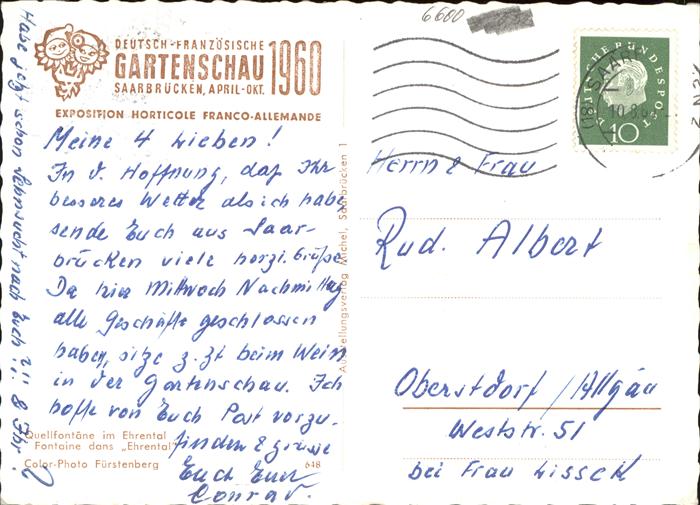 6600
DEUTSCH-FRANZÖSISCHE
GARTENSCHAU 1960
SAARBRÜCKEN, APRIL-OKT.
EXPOSITION HORTICOLE FRANCO-ALLEMANDE
Meine 4 Lieben!
In d. Hoffnung, daß Ihr
besseres Wetter als ich habt
sende Euch aus Saar-
brücken viele herzl. Grüße
Da hier Mittwoch Nachmittag
alle Geschäfte geschlossen
haben, sitze z. Zt beim Wein
in der Gartenschau. Ich
hoffe von Euch Post vorzu-
finden & grüsse
Euch Euer
Conrad.
Habe jetzt schon Sehnsucht nach Euch!!! & Ihr?
Quellfontäne im Ehrental
Fontaine dans „Ehrental"
Color-Photo Fürstenberg
648
Ausstellungsverlag Michel, Saarbrücken 1
DEUTSCHE BUNDESPOST
10
SAAR
10.8.6
Herrn & Frau
Rud. Albert
Oberstdorf/Allgäu
Weststr. 51
bei Frau Lisseck